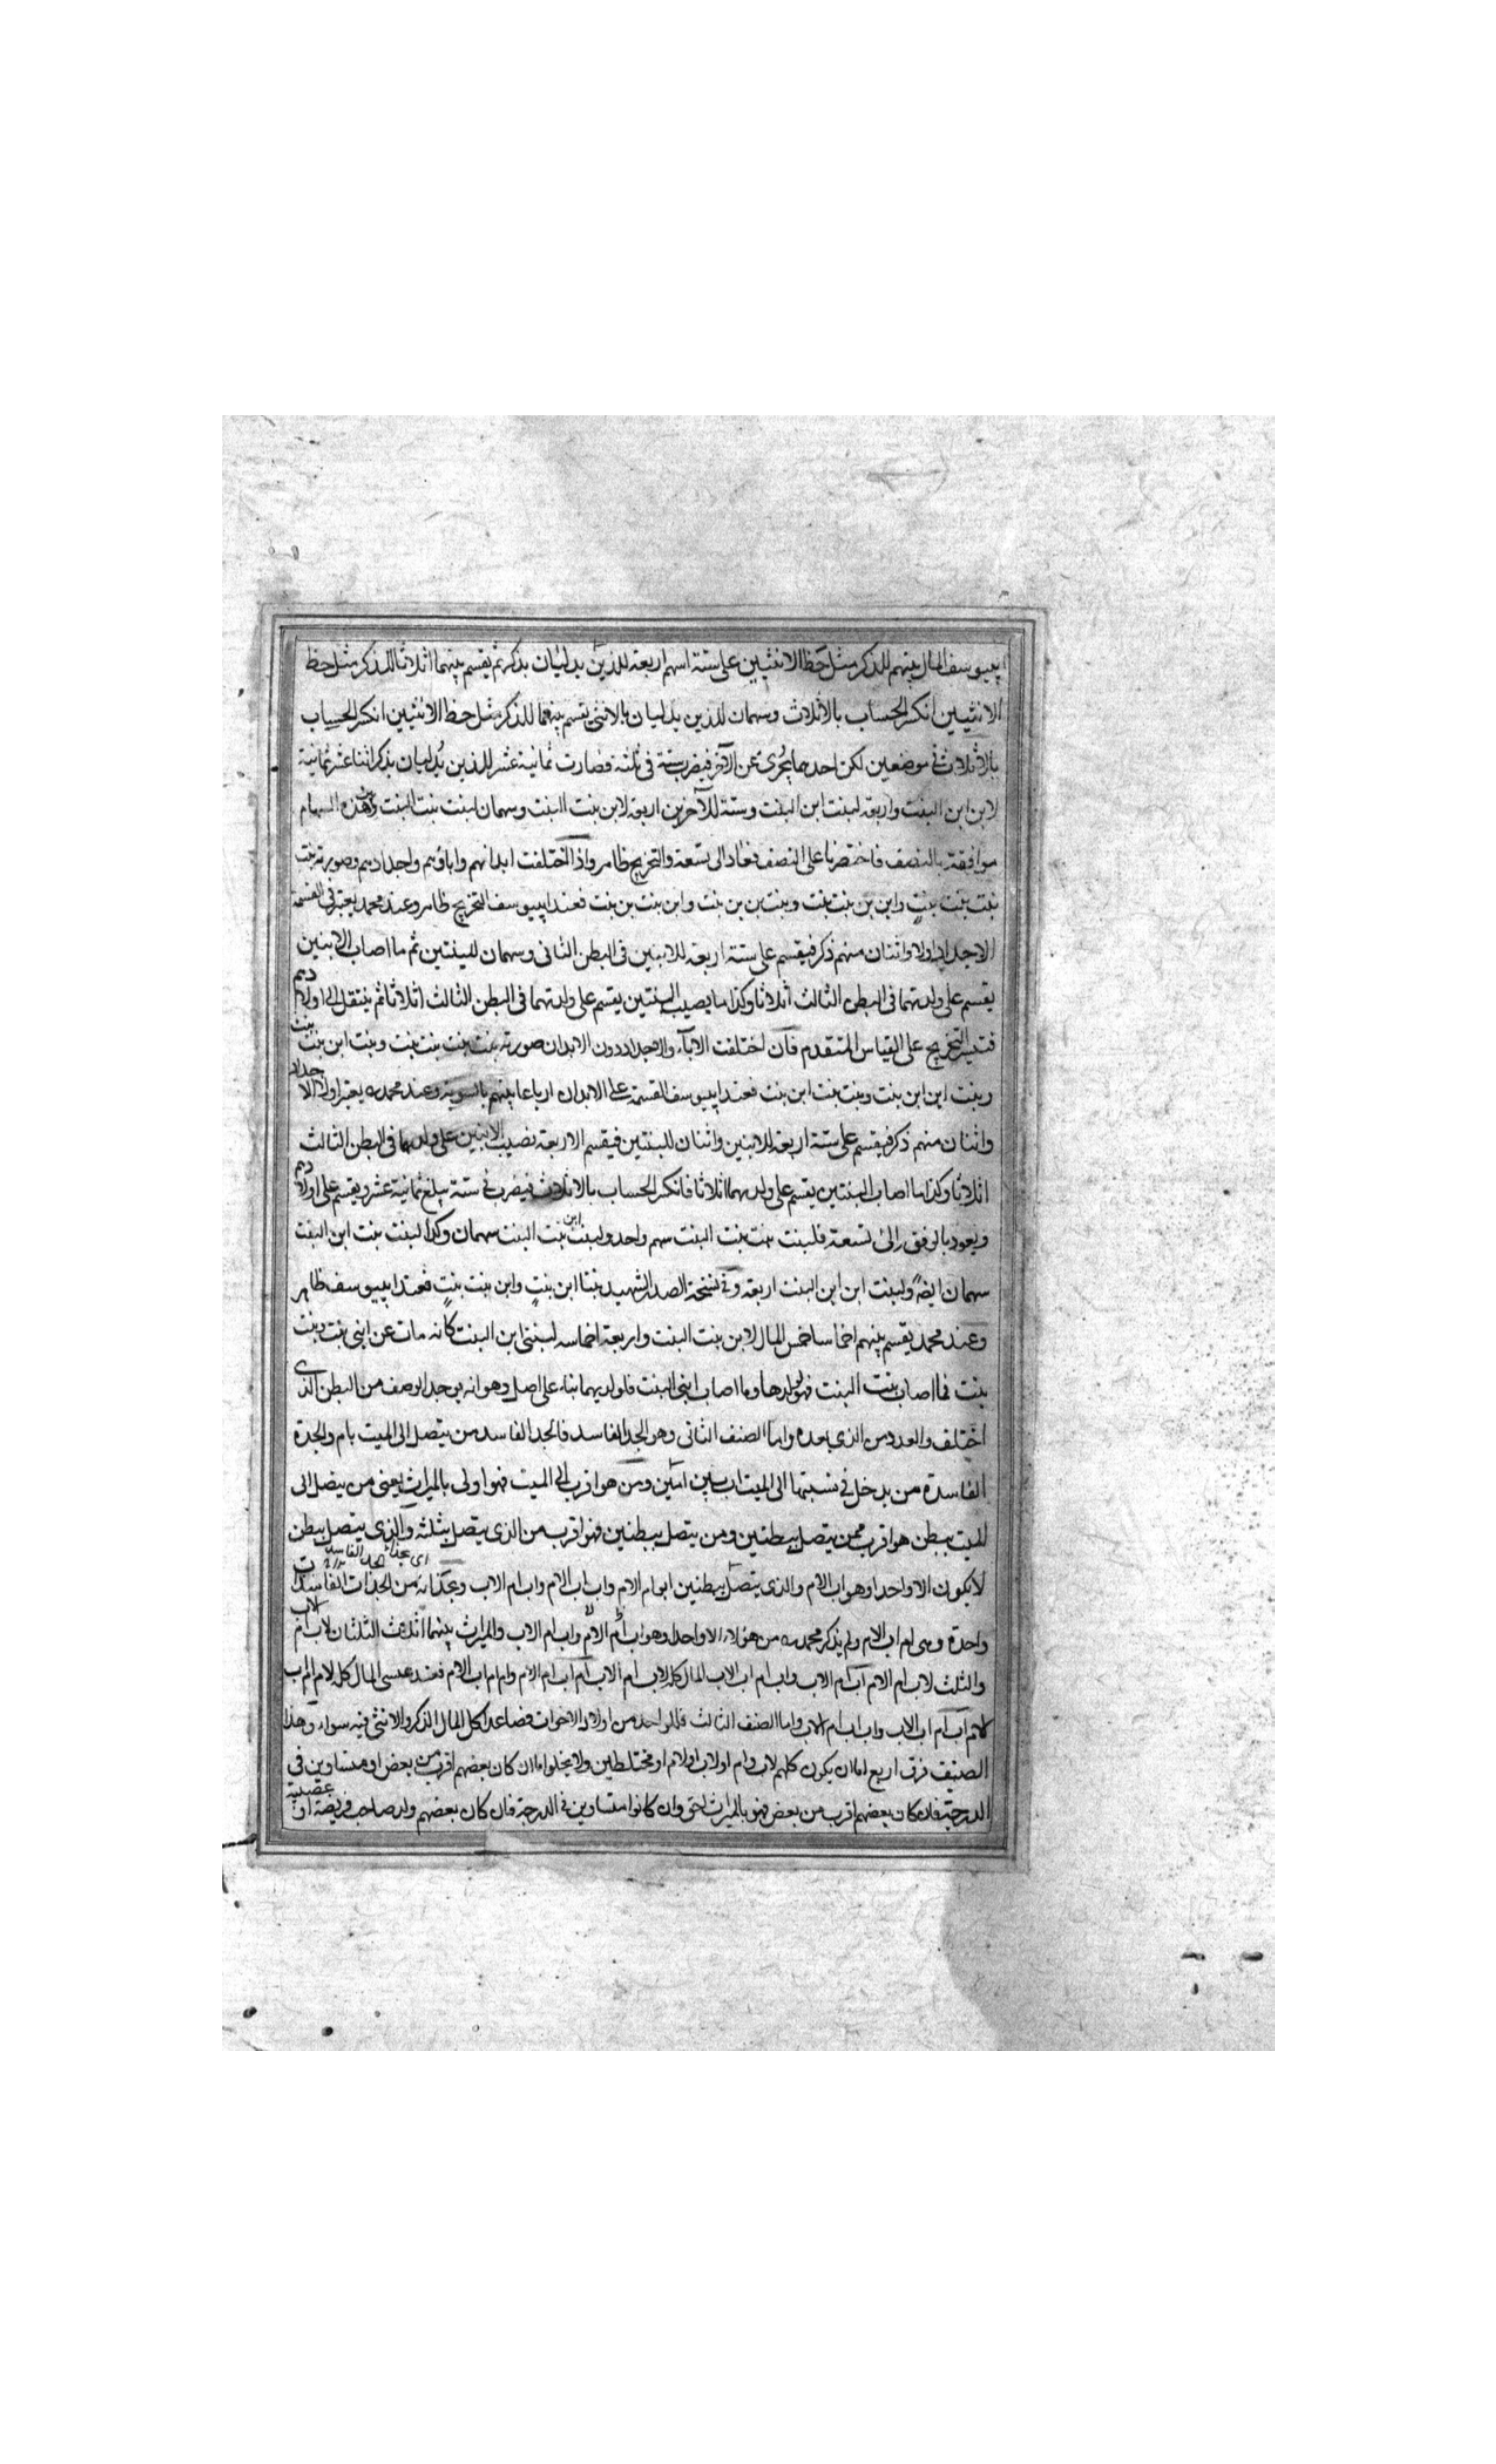 ابييوسف المال بينهم للذكر مثل حظ الانثيين على ستة اسهم اربعة للذين يدليان بذكر ثم يقسم بينهما اثلاثا للذكر مثل حظ
الانثيين انكسر الحساب بالاثلاث وسهمان للذين يدليان بالانثى يقسم بينهما للذكر مثل حظ الانثيين انكسر الحساب
بالاثلاث في موضعين لكن احدهما يجزى عن الآخر فيضرب ستة في ثلثة فصارت ثمانية عشر للذين يدليان بذكر اثنا عشر ثمانية
لابن ابن البنت واربعة لبنت ابن البنت وستة للآخرين اربعة لابن بنت البنت وسهمان لبنت بنت البنت وهذه السهام
موافقة بالنصف فاختصرنا على النصف فعاد الى تسعة والتخريج ظاهر واذا اختلفت ابدانهم واباؤهم واجدادهم وصورته بنت
بنت بنت بنت وابن بن بنت بنت وبنت بن بن بنت وابن بنت بن بنت فعند ابييوسف التخريج ظاهر وعند محمد يعتبر في القسمة
الاجداد اولا واثنان منهم ذكر فيقسم على ستة اربعة للابنين في البطن الثاني وسهمان للبنتين ثم ما اصاب الابنين
يقسم على ولديهما في البطن الثالث اثلاثا وكذا ما يصيب البنتين يقسم على ولديهما في البطن الثالث اثلاثا ثم ينتقل الى اولادهم
فتيسر التخريج على القياس المتقدم فان اختلفت الاباء والاجداد دون الابدان صورته بنت بنت بنت بنت وبنت ابن بنت بنت
وبنت ابن ابن بنت وبنت بنت ابن بنت فعند ابييوسف القسمة على الابدان ارباعا بينهم بالسوية وعند محمد يعتبر اولا الاجداد
واثنان منهم ذكر فيقسم على ستة اربعة للابنين واثنان للبنتين فيقسم الاربعة نصيب الابنين على ولديهما في البطن الثالث
اثلاثا وكذا ما اصاب البنتين يقسم على ولديهما اثلاثا فانكسر الحساب بالاثلاث فيضرب في ستة يبلغ ثمانية عشر ويقسم على اولادهم
ويعود بالوفق الى تسعة فلبنت بنت بنت البنت سهم واحد ولبنت ابن بنت البنت سهمان وكذا لبنت بنت ابن البنت
سهمان ايضا ولبنت ابن ابن البنت اربعة وفي نسخة الصدر الشهيد بنتا ابن بنت وابن بنت بنت فعند ابييوسف ظاهر
وعند محمد يقسم بينهم اخماسا خمس المال لابن بنت البنت واربعة اخماسه لبنتى ابن البنت كانه مات عن ابنى بنت وبنت
بنت فما اصاب بنت البنت فهو لولدها وما اصاب ابنى البنت فلولديهما بناء على اصل وهو انه يوجد الوصف من البطن الذى
اختلف والعدد من الذى بعده واما الصنف الثانى وهو الجد الفاسد فالجد الفاسد من يتصل الى الميت بام والجدة
الفاسدة من يدخل في نسبتها الى الميت اب بين امين ومن هو اقرب الى الميت فهو اولى بالميراث يعنى من يتصل الى
الميت ببطن هو اقرب ممن يتصل ببطنين ومن يتصل ببطنين فهو اقرب من الذى يتصل بثلثة والذى يتصل ببطن
اى بحذاء الجد الفاسد
لا يكون الا واحدا وهو اب الام والذى يتصل ببطنين اب ام الام واب اب الام واب ام الاب وبحذائه من الجدات الفاسدات
واحدة وهى ام اب الام ولم يذكر محمد من هؤلاء الا واحدا وهو اب ام الام واب ام الاب والميراث بينهما اثلاث الثلثان لاب ام الاب
والثلث لاب ام الام اب ام الاب واب ام اب الاب المال كله لاب ام الاب ام اب ام الام وام ام اب الام فعند عيسى المال كله لام اب
لام اب ام اب الاب واب اب ام الاب واما الصنف الثالث فالواحد من اولاد الاخوات فصاعدا كل المال الذكر والانثى فيه سواء وهذا
الصنف فرق اربع اما ان يكون كلهم لاب وام او لاب او لام او مختلطين ولا يخلوا اما ان كان بعضهم اقرب من بعض او متساوين في
الدرجة فان كان بعضهم اقرب من بعض فهو بالميراث احق وان كانوا متساوين في الدرجة فان كان بعضهم ولد صاحب فريضة او عصبة